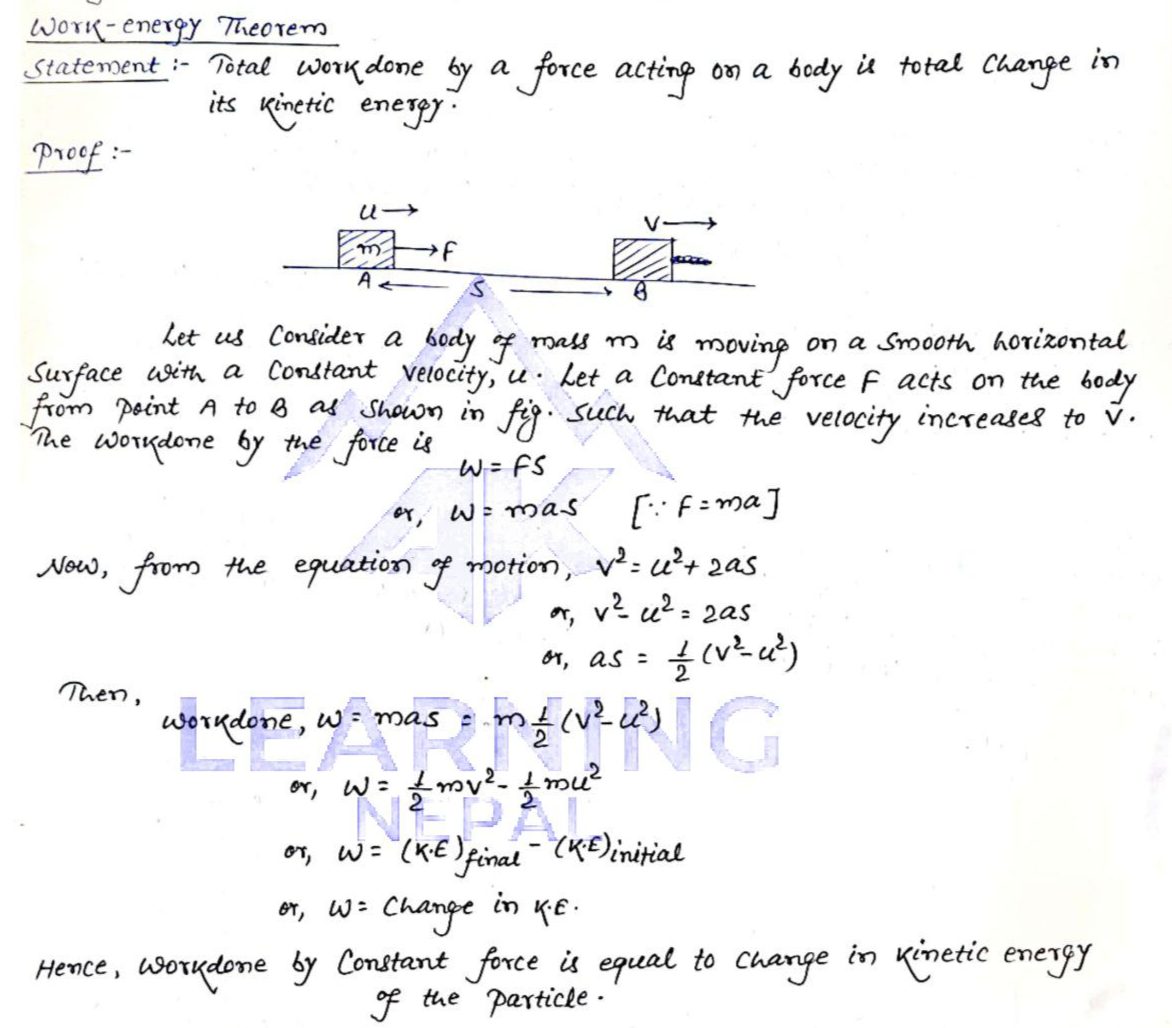 Work-energy Theorem
Statement :- Total workdone by a force acting on a body is total change in
its kinetic energy.
Proof :-
u→ V→
m →F
A ← S → B
Let us Consider a body of mass m is moving on a smooth horizontal
Surface with a Constant velocity, u. Let a Constant force F acts on the body
from point A to B as shown in fig. such that the velocity increases to v.
The workdone by the force is
W = FS
or, W = mas [∵ F = ma]
Now, from the equation of motion, v² = u² + 2as.
or, v² - u² = 2as
or, as = 1/2 (v² - u²)
Then,
workdone, W = mas = m 1/2 (v² - u²)
or, W = 1/2 mv² - 1/2 mu²
or, W = (K.E)final - (K.E)initial
or, W = Change in K.E.
Hence, workdone by Constant force is equal to change in kinetic energy
of the particle.
AK
LEARNING
NEPAL